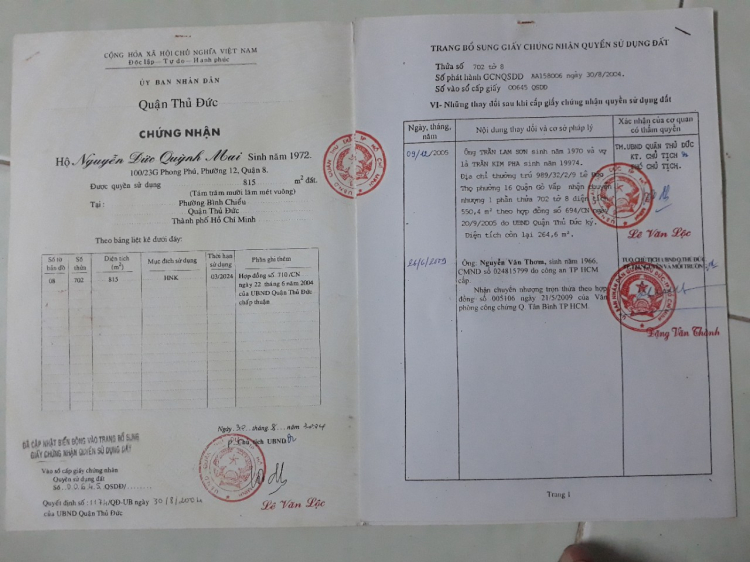 CỘNG HÒA XÃ HỘI CHỦ NGHĨA VIỆT NAM
Độc lập - Tự do - Hạnh phúc
ỦY BAN NHÂN DÂN
Quận Thủ Đức
CHỨNG NHẬN
Hộ Nguyễn Đức Quỳnh Mui Sinh năm 1972.
100/23G Phong Phú, Phường 12, Quận 8.
Được quyền sử dụng 815 m² đất.
(Tám trăm mười lăm mét vuông)
Tại: Phường Bình Chiểu
Quận Thủ Đức
Thành phố Hồ Chí Minh
Theo bảng liệt kê dưới đây:
Số tờ bản đồ Số thửa Diện tích (m²) Mục đích sử dụng Thời hạn sử dụng Phần ghi thêm
08 702 815 HNK 03/2024 Hợp đồng số 710/CN
ngày 22 tháng 6 năm 2004
của UBND Quận Thủ Đức
chấp thuận
Ngày 30 tháng 8 năm 2004
Chủ tịch UBND
ĐÃ CẬP NHẬT BIẾN ĐỘNG VÀO TRANG BỔ SUNG
GIẤY CHỨNG NHẬN QUYỀN SỬ DỤNG ĐẤT
Vào sổ cấp giấy chứng nhận
Quyền sử dụng đất
Số 00645 QSDĐ/
Quyết định số: /QĐ-UB ngày 30/8/2004
của UBND Quận Thủ Đức
Lê Văn Lộc
TRANG BỔ SUNG GIẤY CHỨNG NHẬN QUYỀN SỬ DỤNG ĐẤT
Thửa số 702 tờ 8
Số phát hành GCNQSDD AA158006 ngày 30/8/2004.
Số vào sổ cấp giấy 00645 QSDD
VI- Những thay đổi sau khi cấp giấy chứng nhận quyền sử dụng đất
Ngày, tháng, năm Nội dung thay đổi và cơ sở pháp lý Xác nhận của cơ quan có thẩm quyền
/2005 Ông TRẦN LAM SƠN sinh năm 1970 và vợ
là TRẦN KIM PHA sinh năm 19974.
Địa chỉ thường trú 989/32/2/9 Lê Đức
Thọ phường 16 Quận Gò Vấp nhận chuyển
nhượng 1 phần thửa 702 tờ 8 diện tích
550,4 m² theo hợp đồng số 694/CN ngày
20/9/2005 do UBND Quận Thủ Đức ký.
Diện tích còn lại 264,6 m².
TM.UBND QUẬN THỦ ĐỨC
KT. CHỦ TỊCH
PHÓ CHỦ TỊCH
Lê Văn Lộc
Ông. Nguyễn Văn Thơm, sinh năm 1966,
CMND số 024815799 do công an TP HCM
cấp.
Nhận chuyển nhượng trọn thửa theo hợp
đồng số 005106 ngày 21/5/2009 của Văn
phòng công chứng Q Tân Bình TP HCM
Đặng Văn Thành
Trang 1